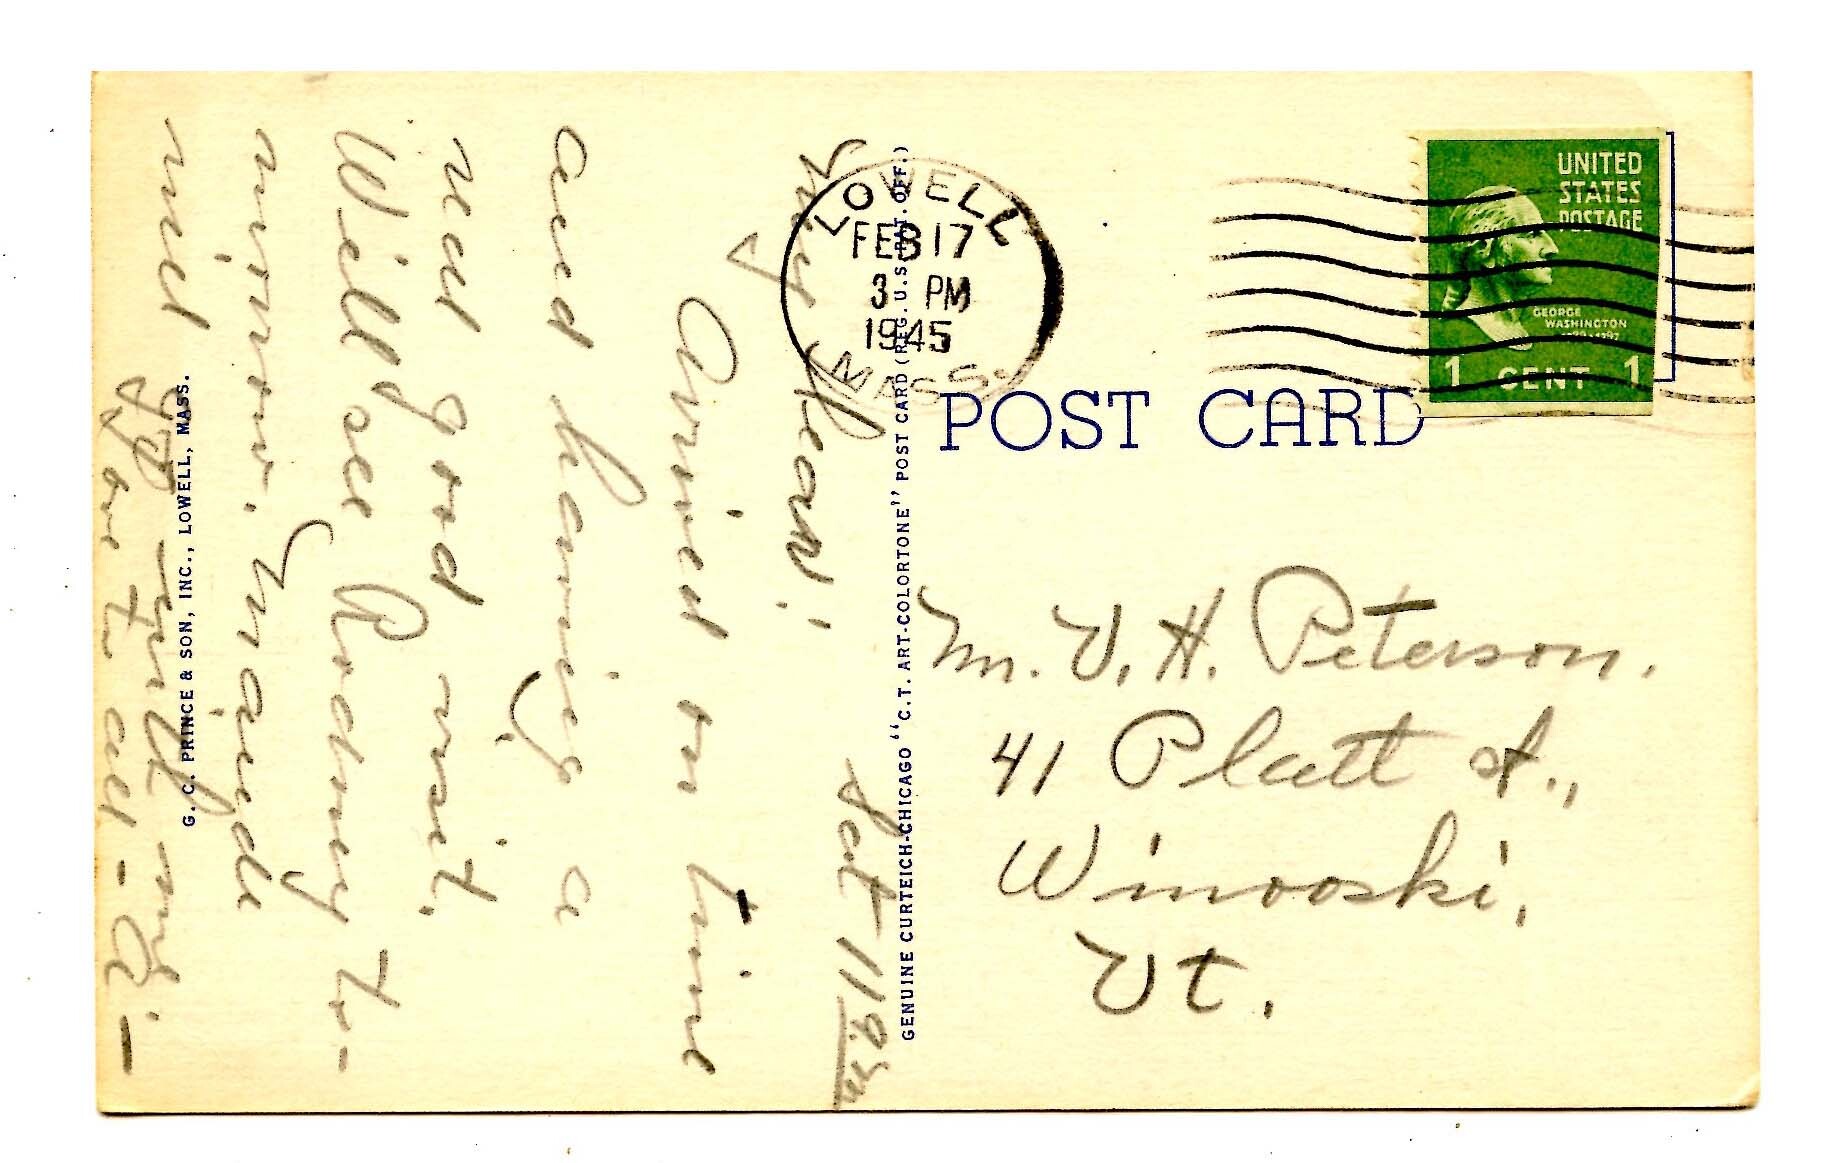 LOWELL
MASS.
FEB 17
3 PM
1945
UNITED
STATES
POSTAGE
GEORGE
WASHINGTON
1 CENT 1
POST CARD
Mr. V. H. Peterson.
41 Platt St.,
Winooski,
Vt.
GENUINE CURTEICH-CHICAGO "C.T. ART-COLORTONE" POST CARD (REG. U.S. PAT. OFF.)
Sat 11 a.m
My Dear!
Arrived on time
and having a
real good visit.
Will see Rodney to-
morrow. Maude
met
Love to all - E. -
G. C. PRINCE & SON, INC., LOWELL, MASS.